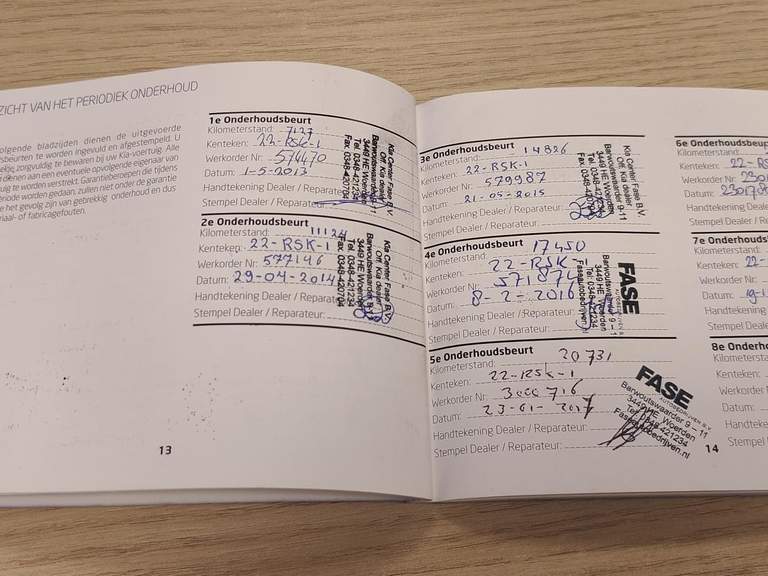 ZICHT VAN HET PERIODIEK ONDERHOUD
olgende bladzijden dienen de uitgevoerde
sbeurten te worden ingevuld en afgestempeld. U
zorgvuldig te bewaren bij uw Kia-voertuig. Alle
dienen aan een eventuele opvolgende eigenaar van
uig te worden verstrekt. Garantieberoepen die tijdens
eriode worden gedaan, zullen niet onder de garantie
e het gevolg zijn van gebrekkig onderhoud en dus
riaal- of fabricagefouten.
1e Onderhoudsbeurt
Kilometerstand: 7127
Kenteken: 22-RSK-1
Werkorder Nr: 574470
Datum: 1-5-2013
Handtekening Dealer / Reparateur
Stempel Dealer / Reparateur:
Kia Center Fase B.V.
Off. Kia dealer
Barwoutswaarder 9-11
3449 HE Woerden
Tel. 0348-421234
Fax 0348-420704
2e Onderhoudsbeurt
Kilometerstand: 11124
Kenteken: 22-RSK-1
Werkorder Nr: 577146
Datum: 29-04-2014
Handtekening Dealer / Reparateur
Stempel Dealer / Reparateur:
Kia Center Fase B.V.
Off. Kia dealer
Barwoutswaarder
3449 HE Woerden
Tel. 0348-421234
Fax 0348-420704
13
3e Onderhoudsbeurt
Kilometerstand: 14826
Kenteken: 22-RSK-1
Werkorder Nr: 579987
Datum: 21-05-2015
Handtekening Dealer / Reparateur:
Stempel Dealer / Reparateur:
Kia Center Fase B.V.
Off. Kia dealer
Barwoutswaarder 9-11
3449 HE Woerden
Tel. 0348-421234
Fax 0348-420704
4e Onderhoudsbeurt
Kilometerstand: 17450
Kenteken: 22-RSK-
Werkorder Nr: 571874
Datum: 8-2-2016
Handtekening Dealer / Reparateur:
Stempel Dealer / Reparateur:
FASE
Barwoutswaarder 9 – 11
3449 HE Woerden
Tel. 0348-421234
Faseautobedrijven.nl
5e Onderhoudsbeurt
Kilometerstand: 20731
Kenteken: 22-RSK-1
Werkorder Nr: 3000716
Datum: 23-01-2017
Handtekening Dealer / Reparateur:
Stempel Dealer / Reparateur:
FASE
AUTOBEDRIJVEN B.V.
Barwoutswaarder 9 – 11
3449 HE Woerden
Tel. 0348-421234
Faseautobedrijven.nl
14
6e Onderhoudsbeu
Kilometerstand:
Kenteken: 22-RS
Werkorder Nr: 230
Datum: 230178
Handtekening Deale
Stempel Dealer / Re
7e Onderhoud
Kilometerstand:
Kenteken: 22-
Werkorder Nr:
Datum: 19-1
Handtekening
Stempel Deale
8e Onderho
Kilometersta
Kenteken:
Werkorder
Datum:
Handteke
Stempel